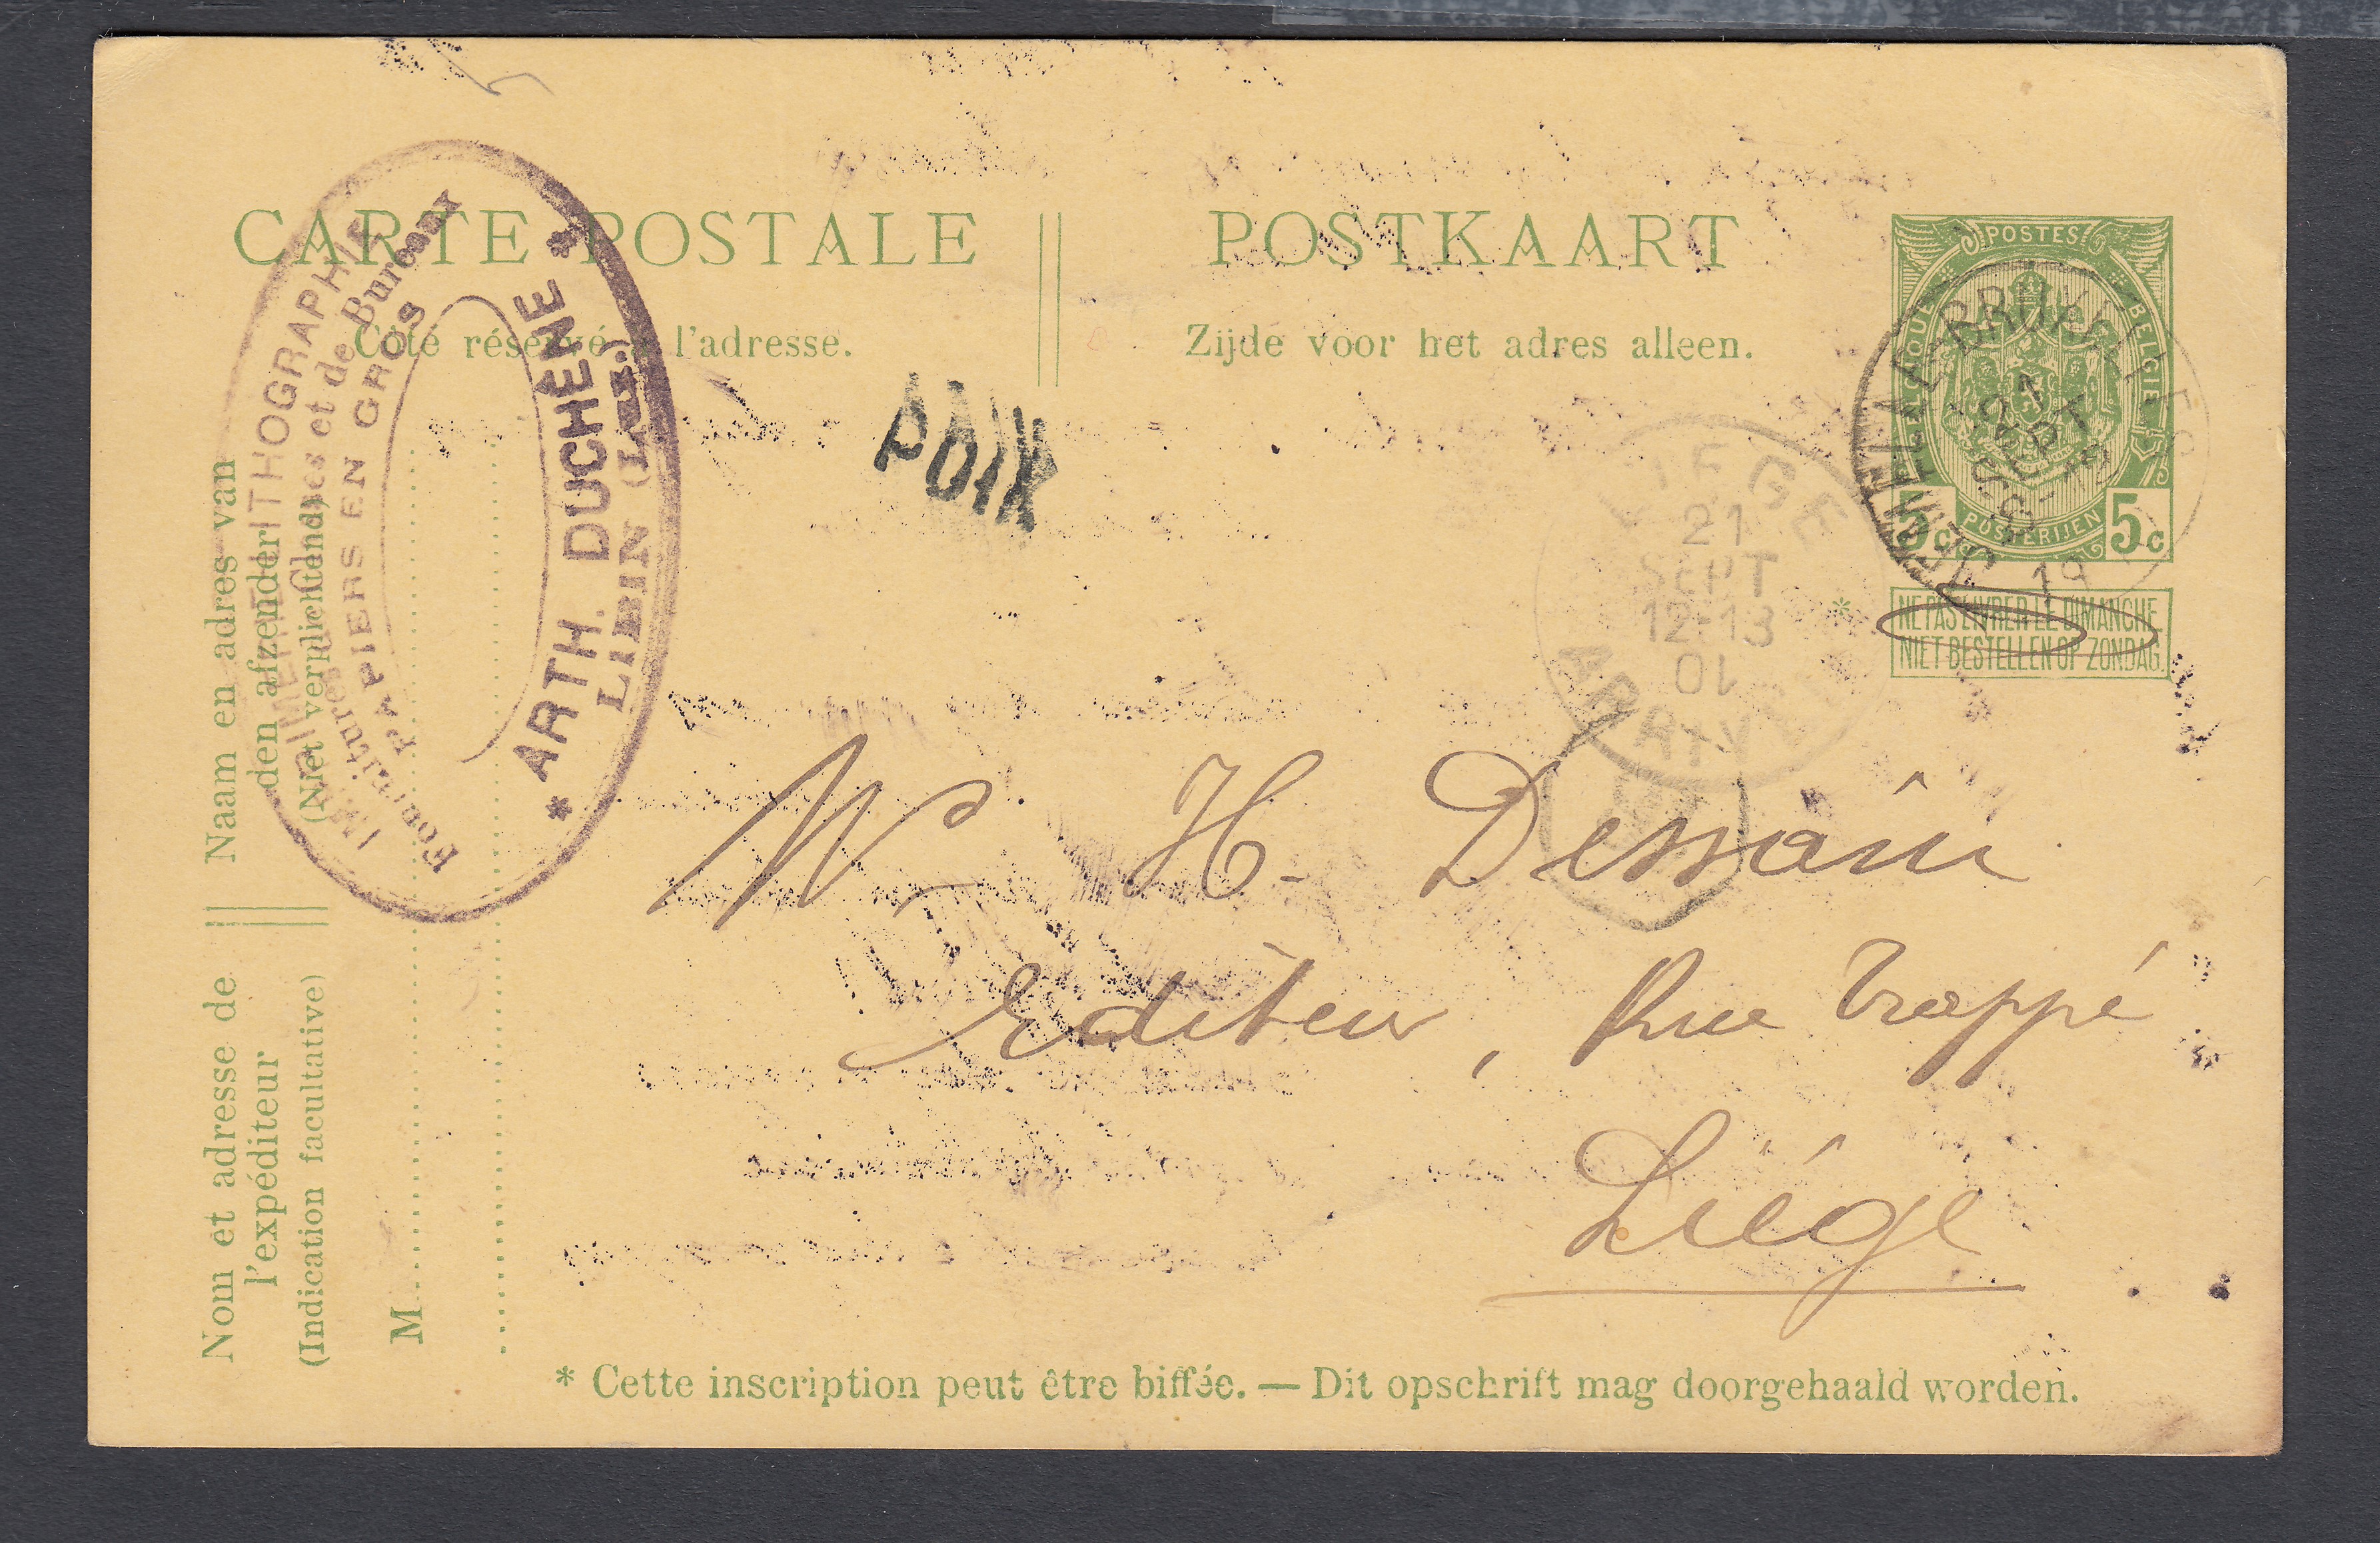 CARTE POSTALE
POSTKAART
Côté réservé à l'adresse.
Zijde voor het adres alleen.
POSTES
BELGIQUE
BELGIE
5c
POSTERIJEN
5c
NE PAS LIVRER LE DIMANCHE
NIET BESTELLEN OP ZONDAG.
*
BRUXELLES
SEPT
POIX
LIEGE
21
SEPT
12-13
01
ARRIVEE
IMPRIMERIE LITHOGRAPHIE
Fournitures Classiques et de Bureaux
PAPIERS EN GROS
* ARTH. DUCHÊNE *
LIBIN (Lux.)
Naam en adres van
den afzender
(Niet verplichtend)
Nom et adresse de
l'expéditeur
(Indication facultative)
M
Mr H. Dessain
Editeur, Rue Trappé
Liége
* Cette inscription peut être biffée. — Dit opschrift mag doorgehaald worden.